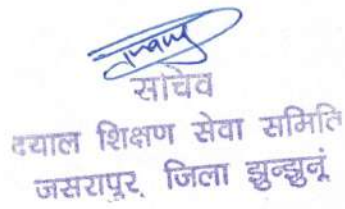 सचिव
दयाल शिक्षण सेवा समिति
जसरापुर, जिला झुन्झुनूं